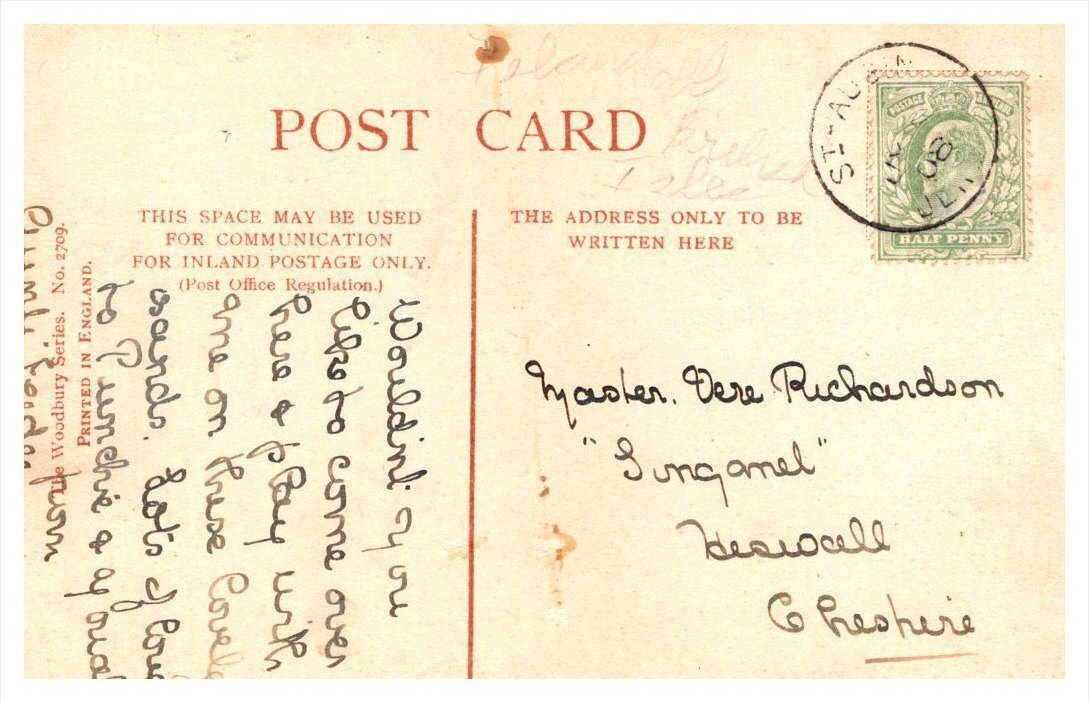 POST CARD
THIS SPACE MAY BE USED
FOR COMMUNICATION
FOR INLAND POSTAGE ONLY.
(Post Office Regulation.)
THE ADDRESS ONLY TO BE
WRITTEN HERE
POSTAGE
HALF PENNY
ST-AUBIN
08
British
Isles
Master. Vere Richardson
Heswall
Cheshire
Wouldn't you
like to come over
here & play with
me on these lovely
sands. Lots of love
to &
from
The Woodbury Series. No. 2709.
PRINTED IN ENGLAND.